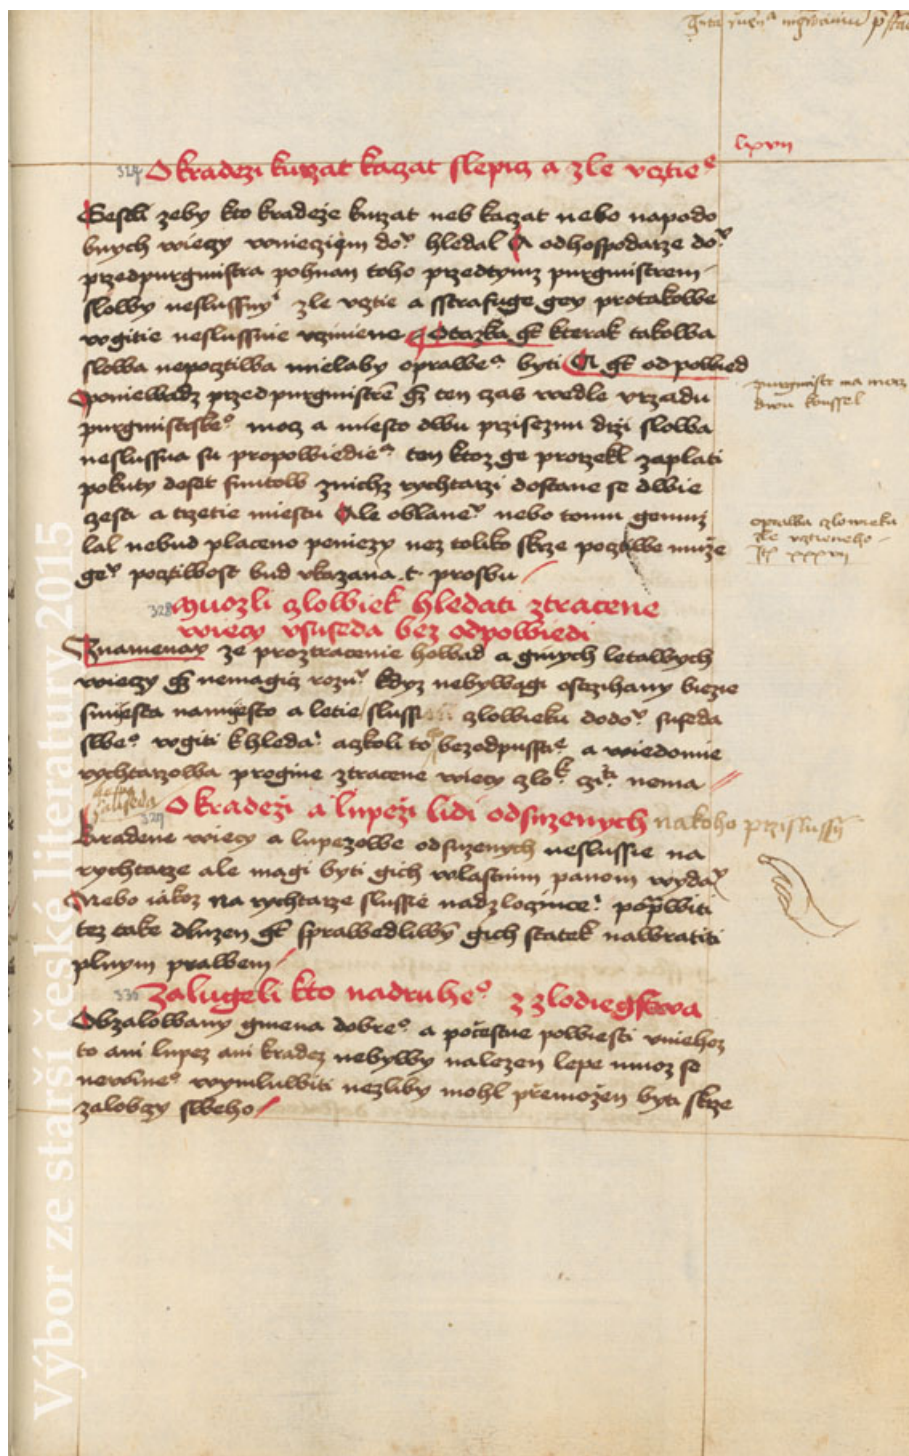 lxvii
327 O kradezi kurzat kaczat slepicz a zle vcztie°
Gestli zeby kto kradeze kurzat neb kaczat nebo napodo
bnych wieczy wniecziem do° hledal A odhospodarze do°
przedpurgmistra pohnan toho przedtymz purgmistrem
slowy neslussny' zle vcztie a sstrafuge gey protakowe
vgitie neslussnie vczinene Otazka gt kterak takowa
slowa nepocztiwa mielaby oprawe° byti A gt odpowied
Poniewadz przedpurgmistre gz ten czas wedle vrzadu
purgmistrske° mocz a miesto dwu prziseznu drzi slowa
neslussna su propowiedie° ten ktoz ge prorzekl zaplati
pokuty deset funtow znichz rychtarzi dostane se dwie
czesti a trzetie miestu Ale oblane° nebo tomu gemuz
lal nebud placeno peniezy nez toliko skrze pocztiwe muze
ge° pocztiwost bud vkazana t prosbu
purgmistr ma mocz
dwu konssel
oprawa czlowieka
zle vcztieneho
328 muozli czlowiek hledati ztracene
wieczy vsuseda bez odpowiedi
Znamenay ze proztracenie howad a ginych letawych
wieczy gz nemagicz rozu' kdyz nebywagi ostrzihany biezie
smiesta namiesto a letie slussi czlowieku dodo° suseda
swe° vgiti khleda' aczkoli to bezodpusste° a wiedomie
rychtarzowa progine ztracene wieczy czlo k czi ti nema
329 O kradeži a lupeži lidi odsuzenych nakoho przislussy
Kradene wieczy a lupezowe odsuzenych neslussie na
rychtarze ale magi byti gich wlastnim panom wyda'
Nebo iakoz na rychtarze slussie nadzlogince' poprwiti
tez take dluzen gt sprawedliwy gich statek nawratiti
plnym prawem
330 Zalugeli kto nadruhe° z zlodiegstwa
Obzalowany gmena dobre° a poczestne powiesti vniehoz
to ani lupez ani kradez nebywy nalezen lepe muoz se
newinne° wymluwiti nezliby mohl přemožen byti skrze
zalobczy sweho
Výbor ze starší české literatury 2015